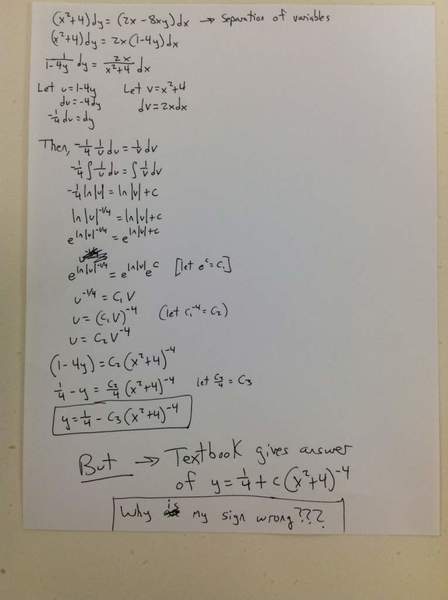 (x²+4)dy = (2x - 8xy)dx → Separation of variables
(x²+4)dy = 2x(1-4y)dx
1/(1-4y) dy = 2x/(x²+4) dx
Let u = 1-4y Let v = x²+4
du = -4dy dv = 2xdx
-1/4 du = dy
Then, -1/4 1/u du = 1/v dv
-1/4 ∫ 1/u du = ∫ 1/v dv
-1/4 ln|u| = ln|v| + c
ln|u|^(-1/4) = ln|v| + c
e^(ln|u|^(-1/4)) = e^(ln|v| + c)
e^(ln|u|^(-1/4)) = e^(ln|v|) e^c [let e^c = c₁]
u^(-1/4) = c₁ v
u = (c₁ v)^(-4) (let c₁^(-4) = c₂)
u = c₂ v^(-4)
(1-4y) = c₂(x²+4)^(-4)
1/4 - y = c₂/4 (x²+4)^(-4) let c₂/4 = c₃
y = 1/4 - c₃(x²+4)^(-4)
But → Textbook gives answer
of y = 1/4 + c(x²+4)^(-4)
Why is my sign wrong???